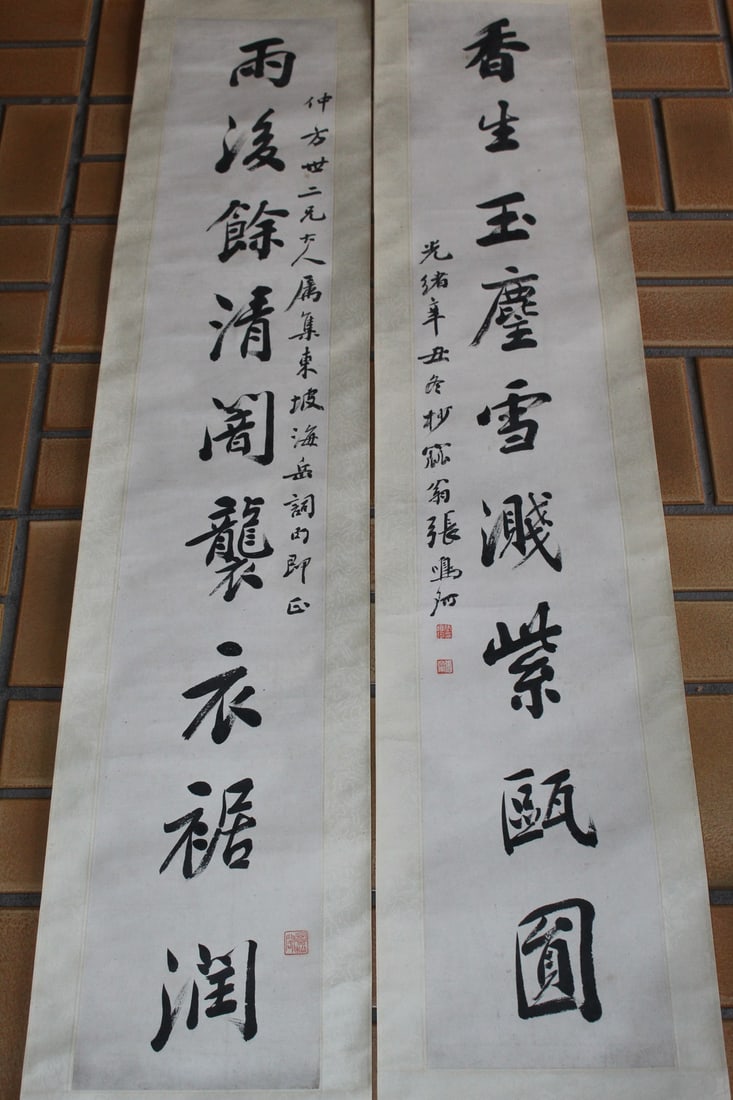 雨後餘清闇襲衣裾潤
仲方世二兄大人属集東坡海岳詞句即正
香生玉塵雪濺紫甌圓
光緒辛丑冬杪窳翁張鳴珂